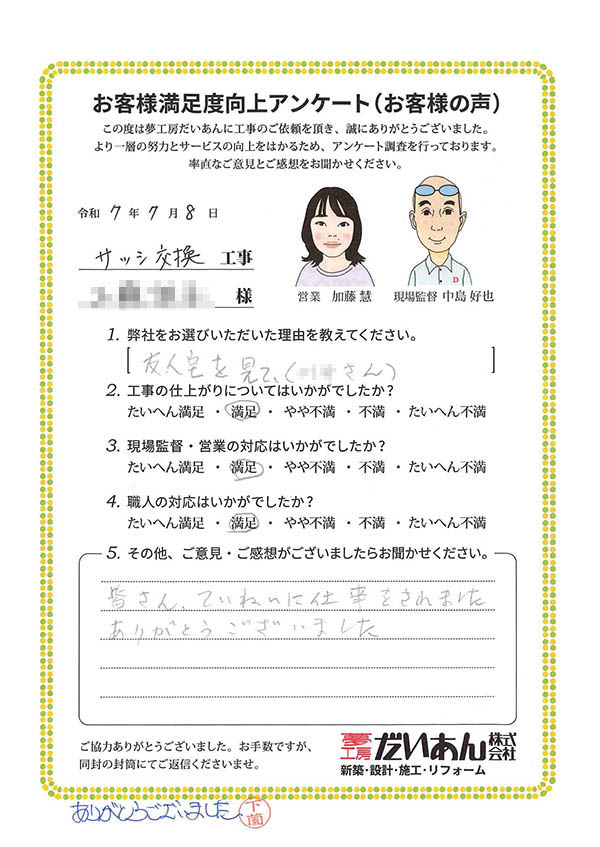 お客様満足度向上アンケート(お客様の声)
この度は夢工房だいあんに工事のご依頼を頂き、誠にありがとうございました。
より一層の努力とサービスの向上をはかるため、アンケート調査を行っております。
率直なご意見とご感想をお聞かせください。
令和 7 年 7 月 8 日
サッシ交換 工事
様
営業 加藤 慧
現場監督 中島 好也
D
1. 弊社をお選びいただいた理由を教えてください。
[友人宅を見て、( さん)]
2. 工事の仕上がりについてはいかがでしたか?
たいへん満足 ・ 満足 ・ やや不満 ・ 不満 ・ たいへん不満
3. 現場監督・営業の対応はいかがでしたか?
たいへん満足 ・ 満足 ・ やや不満 ・ 不満 ・ たいへん不満
4. 職人の対応はいかがでしたか?
たいへん満足 ・ 満足 ・ やや不満 ・ 不満 ・ たいへん不満
5. その他、ご意見・ご感想がございましたらお聞かせください。
皆さん、ていねいに仕事をされました
ありがとうございました
ご協力ありがとうございました。お手数ですが、
同封の封筒にてご返信くださいませ。
夢工房 だいあん 株式会社
新築・設計・施工・リフォーム
ありがとうございました。 下薗